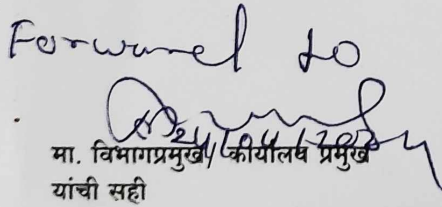 Forward to
मा. विभागप्रमुख/ कार्यालय प्रमुख
यांची सही